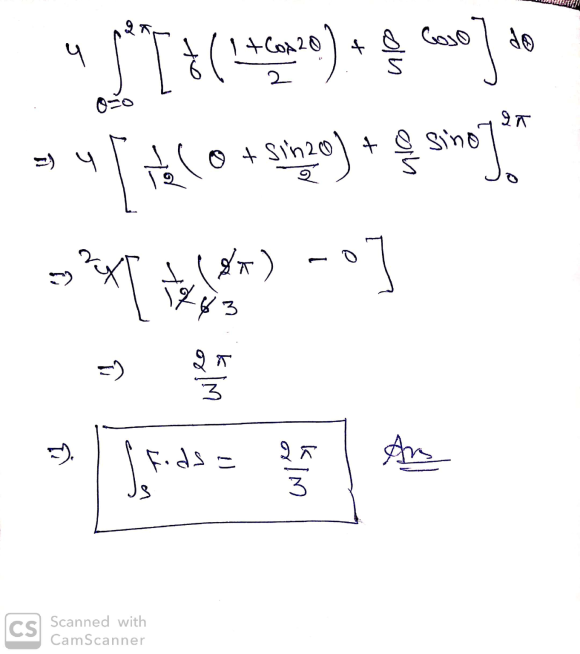 4 ∫_{θ=0}^{2π} [ 1/6 ( (1+Cos2θ)/2 ) + 8/5 Cosθ ] dθ
⇒ 4 [ 1/12 ( θ + Sin2θ/2 ) + 8/5 Sinθ ]_0^{2π}
⇒ 2 4 [ 1/12 6 3 (2π) - 0 ]
⇒ 2π/3
⇒. ∫_S F.ds = 2π/3 Ans
CS Scanned with
CamScanner